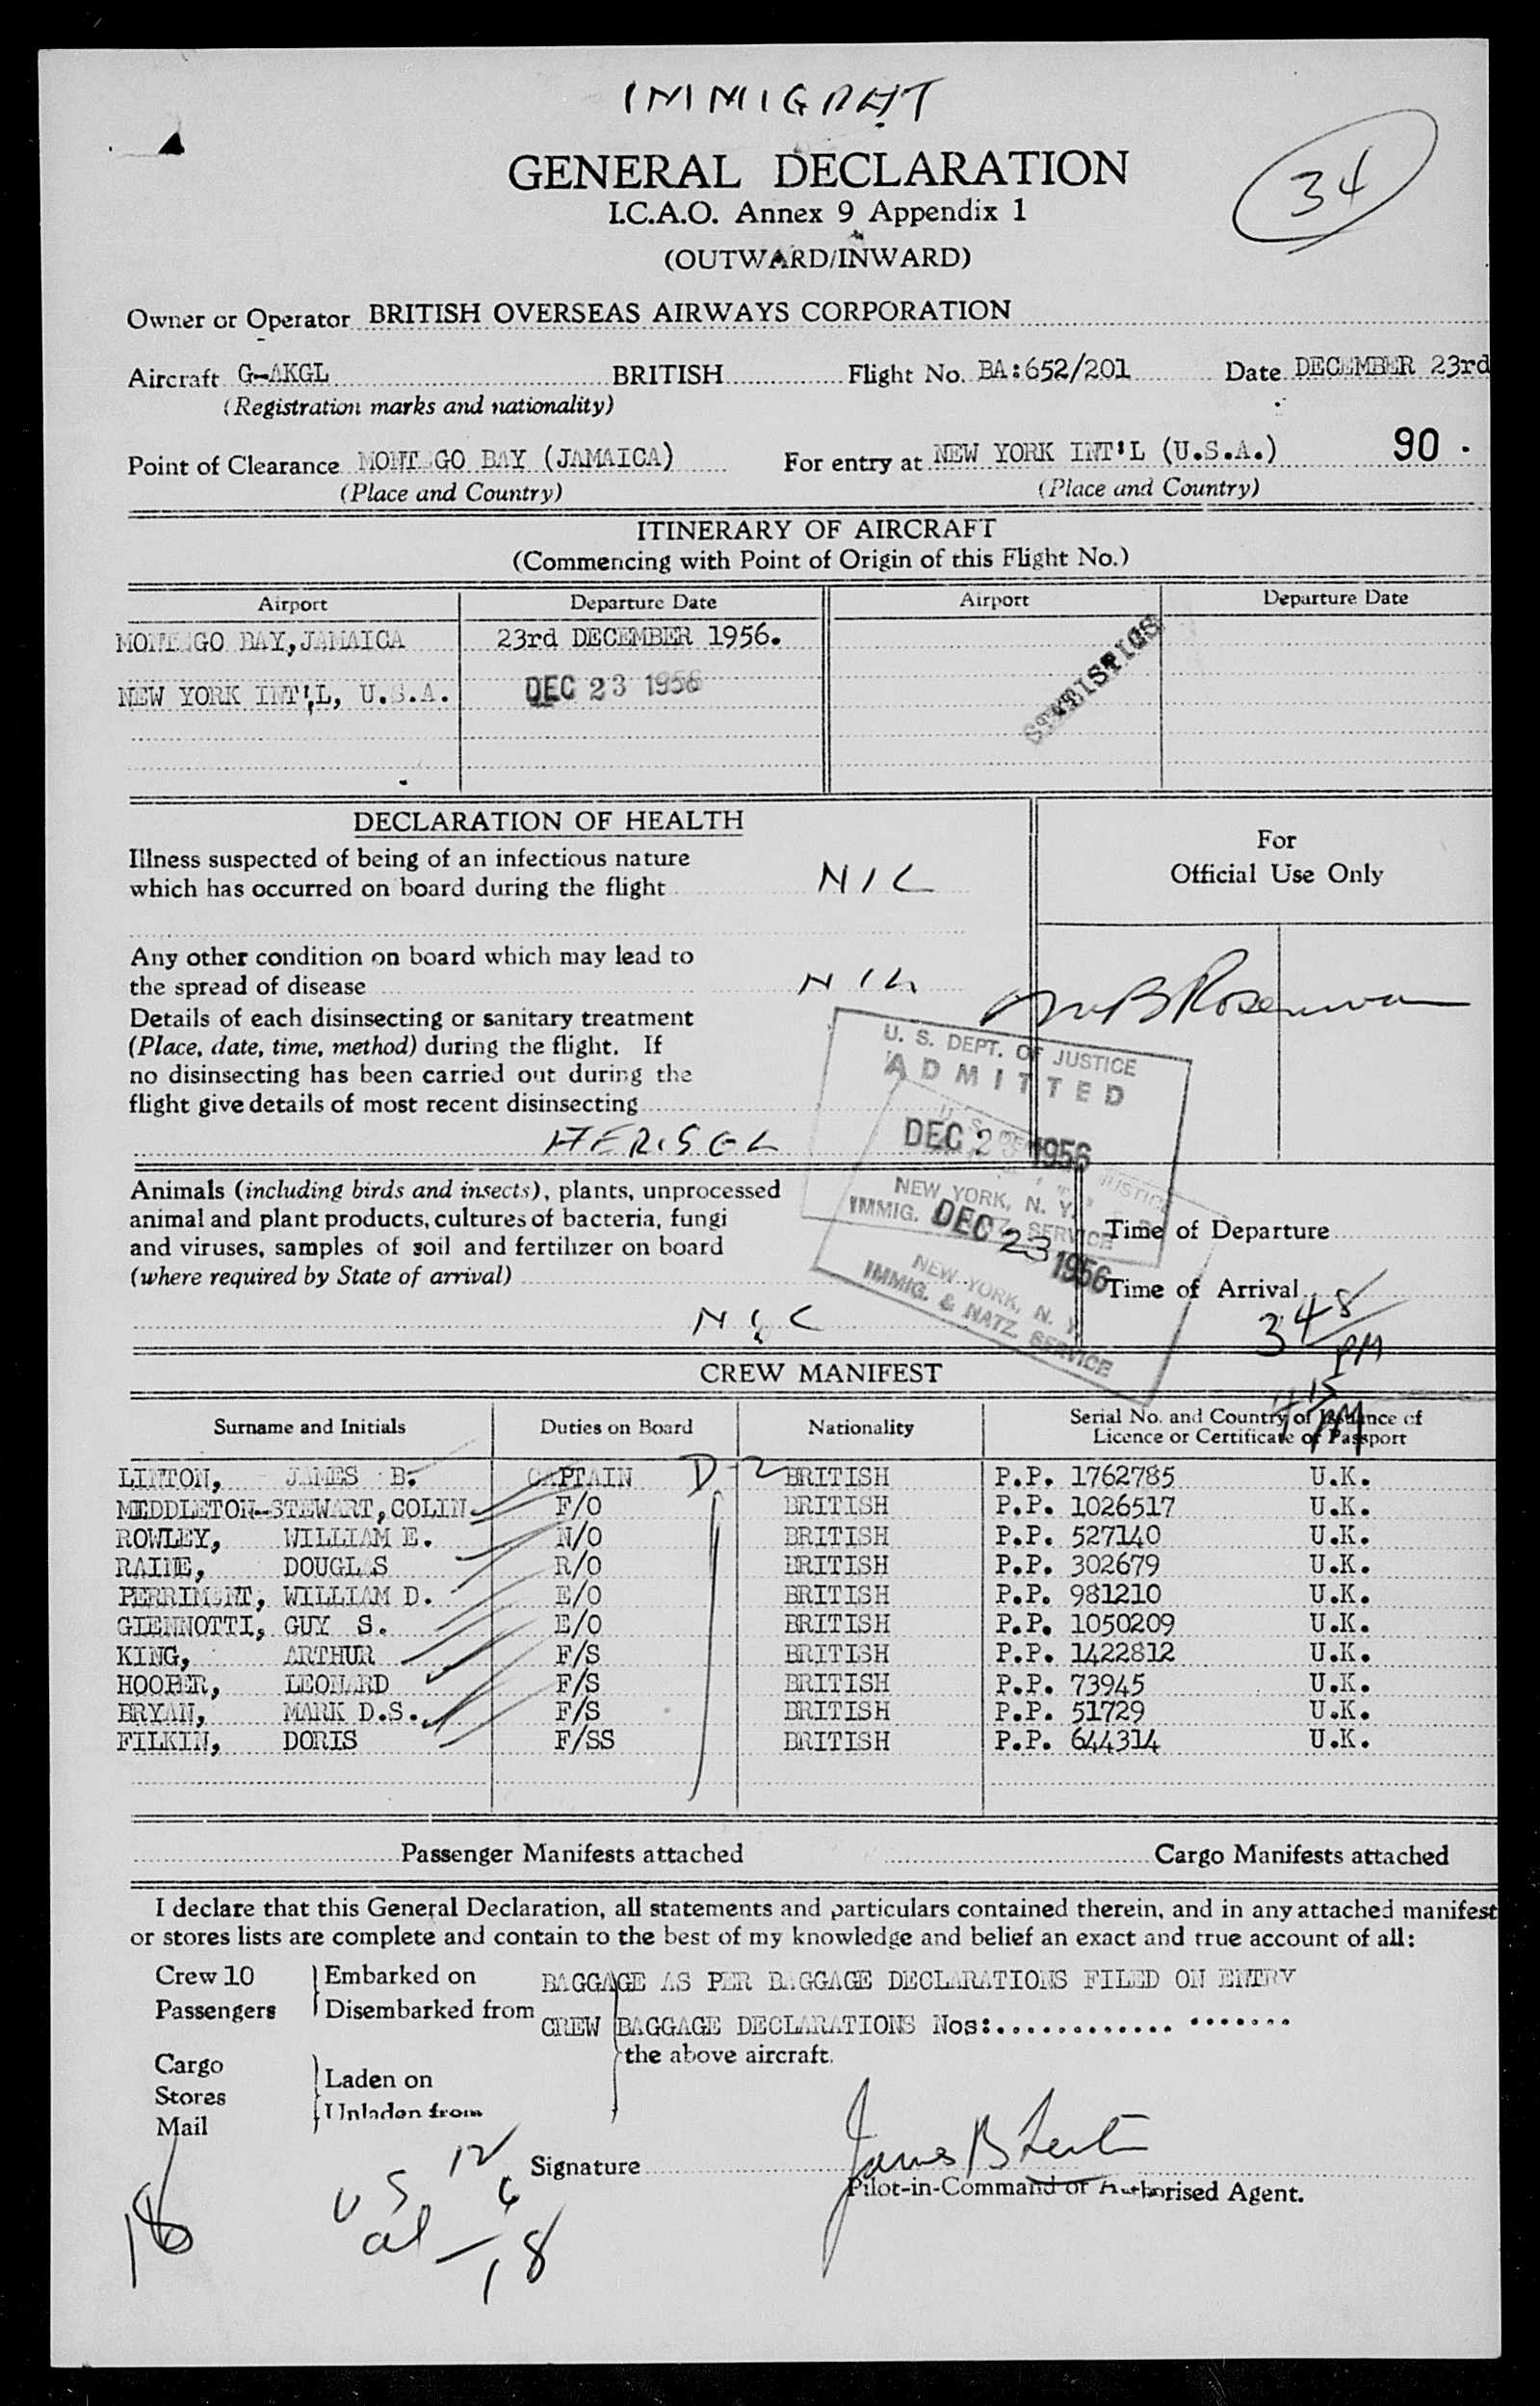 IMMIGRAT
34
GENERAL DECLARATION
I.C.A.O. Annex 9 Appendix 1
(OUTWARD/INWARD)
Owner or Operator BRITISH OVERSEAS AIRWAYS CORPORATION
Aircraft G-AKGL BRITISH Flight No. BA:652/201 Date DECEMBER 23rd
(Registration marks and nationality)
Point of Clearance MONTEGO BAY (JAMAICA) For entry at NEW YORK INT'L (U.S.A.) 90.
(Place and Country) (Place and Country)
ITINERARY OF AIRCRAFT
(Commencing with Point of Origin of this Flight No.)
Airport Departure Date Airport Departure Date
MONTEGO BAY, JAMAICA 23rd DECEMBER 1956.
STATISTICS
NEW YORK INT'L, U.S.A. DEC 23 1956
DECLARATION OF HEALTH
For
Official Use Only
Illness suspected of being of an infectious nature
which has occurred on board during the flight NIL
Any other condition on board which may lead to
the spread of disease NIL
Details of each disinsecting or sanitary treatment
(Place, date, time, method) during the flight. If
no disinsecting has been carried out during the
flight give details of most recent disinsecting
U. S. DEPT. OF JUSTICE
ADMITTED
DEC 23 1956
NEW YORK, N. Y.
IMMIG. & NATZ. SERVICE
DEC 23 1956
NEW YORK, N. Y.
IMMIG. & NATZ. SERVICE
Animals (including birds and insects), plants, unprocessed
animal and plant products, cultures of bacteria, fungi
and viruses, samples of soil and fertilizer on board
(where required by State of arrival)
NIL
Time of Departure
Time of Arrival
348 PM
415 PM
CREW MANIFEST
Surname and Initials Duties on Board Nationality Serial No. and Country of Issuance of Licence or Certificate or Passport
LINTON, JAMES B. CAPTAIN D-2 BRITISH P.P. 1762785 U.K.
MEDDLETON-STEWART, COLIN F/O BRITISH P.P. 1026517 U.K.
ROWLEY, WILLIAM E. N/O BRITISH P.P. 527140 U.K.
RAINE, DOUGLAS R/O BRITISH P.P. 302679 U.K.
PERRIMENT, WILLIAM D. E/O BRITISH P.P. 981210 U.K.
GIENNOTTI, GUY S. E/O BRITISH P.P. 1050209 U.K.
KING, ARTHUR F/S BRITISH P.P. 1422812 U.K.
HOOPER, LEONARD F/S BRITISH P.P. 73945 U.K.
BRYAN, MARK D.S. F/S BRITISH P.P. 51729 U.K.
FILKIN, DORIS F/SS BRITISH P.P. 644314 U.K.
Passenger Manifests attached Cargo Manifests attached
I declare that this General Declaration, all statements and particulars contained therein, and in any attached manifest
or stores lists are complete and contain to the best of my knowledge and belief an exact and true account of all:
Crew 10 Embarked on BAGGAGE AS PER BAGGAGE DECLARATIONS FILED ON ENTRY
Passengers Disembarked from CREW BAGGAGE DECLARATIONS Nos:.............. .......
the above aircraft.
Cargo
Laden on
Stores
Unladen from
Mail
Signature James B Linton
Pilot-in-Command or Authorised Agent.
US 12
al 6
18
18